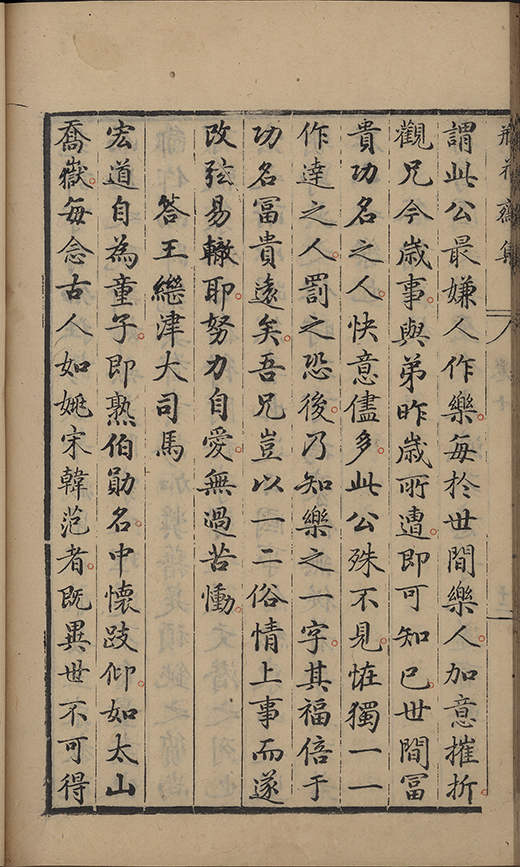 瓶花齋集
謂此公最嫌人作樂每於世間樂人加意摧折
觀兄今歲事與弟昨歲所遭即可知已世間冨
貴功名之人快意儘多此公殊不見恠獨一一
作達之人罰之恐後乃知樂之一字其福倍于
功名冨貴遠矣吾兄豈以一二俗情上事而遂
改弦易轍耶努力自愛無過苦慟
答王繼津大司馬
宏道自為童子即熟伯勛名中懷跂仰如太山
喬嶽每念古人如姚宋韓范者既異世不可得